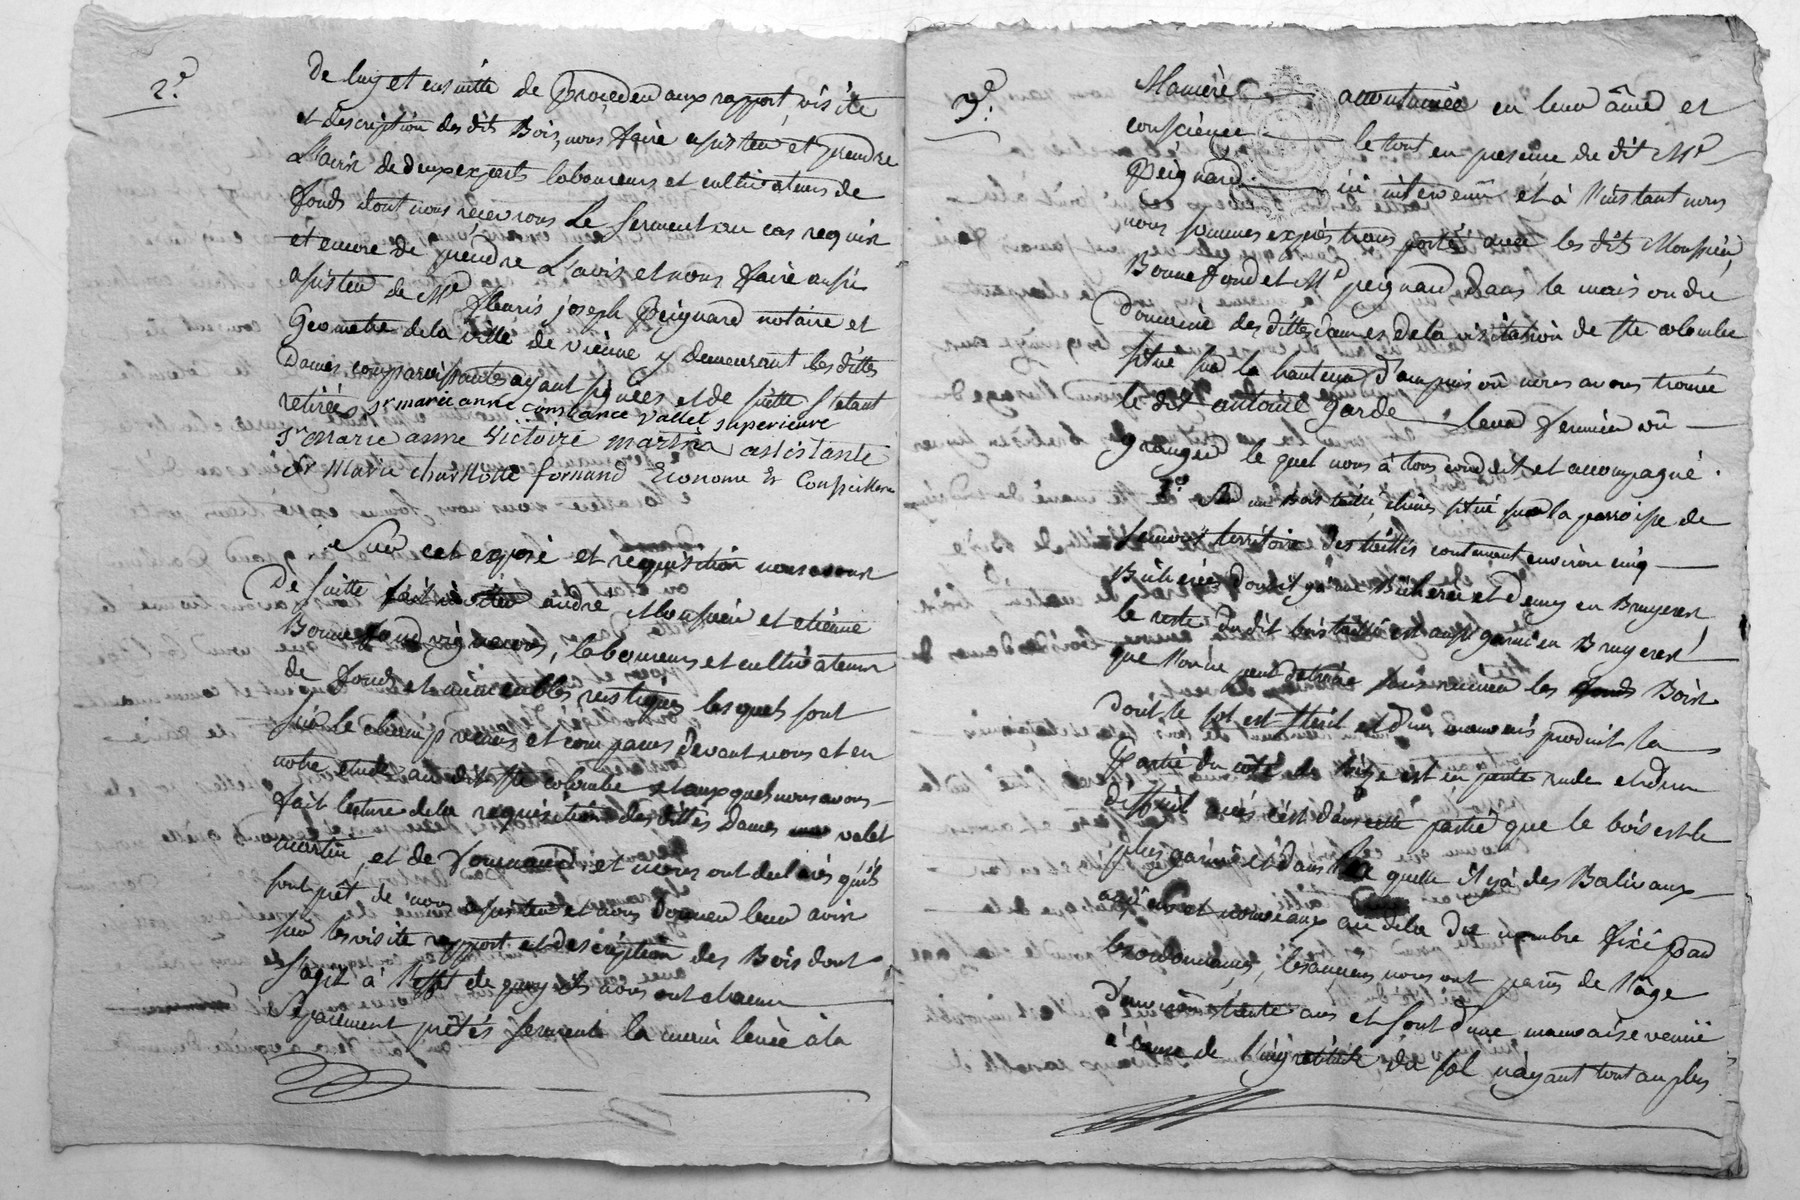 2.e
de luy et ensuitte de proçeder aux rapport, visite
et description des dits Bois, nous faire assister et prendre
L'avis de deux experts laboureurs et cultivateurs de
fonds dont nous reçevrons le serment au cas requis
et encore de prendre L'avis et nous faire aussi
assister de Me fleuris joseph Peignard notaire et
Geometre de la ville de vienne y demeurant les dittes
Dames comparoissantes ayant signées et de suitte s'etant
retirées sr marie anne constance vallet superieure
sr marie anne victoire martin assistante
sr Marie charlotte fornand Econome & Conseillere
Sur cet exposé et requisition nous avons
de suitte fait andré Monssieu et etienne
Bonnefond vignerons, laboureurs et cultivateurs
de fonds et immeubles rustiques lesquels sont
sur le champ venus et comparus devant nous et en
notre etude au dit ste colombe et auxquels nous avons
fait lecture de la requisition des dittes Dames valet
martin, et de fournand et nous ont declarés qu'ils
sont prêt de nous assister et nous donner leur avis
sur les visite rapport et description des Bois dont
s'agit à l'effet de quoy ils nous ont chacun
separement prêtés serment la main levée à la
3.e
Maniere accoutumée en leur âme et
conscience le tout en presence du dit Me
Peignard ici intervenu et à l'instant nous
nous sommes exprès transporté avec les dits Monssieu,
Bonnefond et Me peignard dans la maison du
Domaine des dittes dames de la visitation de ste colombe
situé sur la hauteur d'ampuis où nous avons trouvé
le dit antoine Garde leur fermier ou
granger le quel nous à tous conduit et accompagné.
1o sur un Bois taillis, chênes situé sur la parroisse de
territoire des taillis contenant environ cinq
Bicherées dont il y a une Bicherée et demy en Bruyeres
le reste du dit bois taillis est aussi garni en Bruyeres
que l'on ne peut detruire sans ruiner les Bois
dont le sol est steril et d'un mauvais produit la
Partie du côté de bize est en pente rude et d'un
difficil accés c'est dans cette partie que le bois est le
plus garni et dans la quelle il y à des Balivaux
anciens et nouveaux au dela du nombre fixé par
les ordonnances, les anciens nous ont parus de l'âge
d'environ trente ans et sont d'une mauvaise venüe
à cause de l'ingratitude du sol n'ayant tout au plus